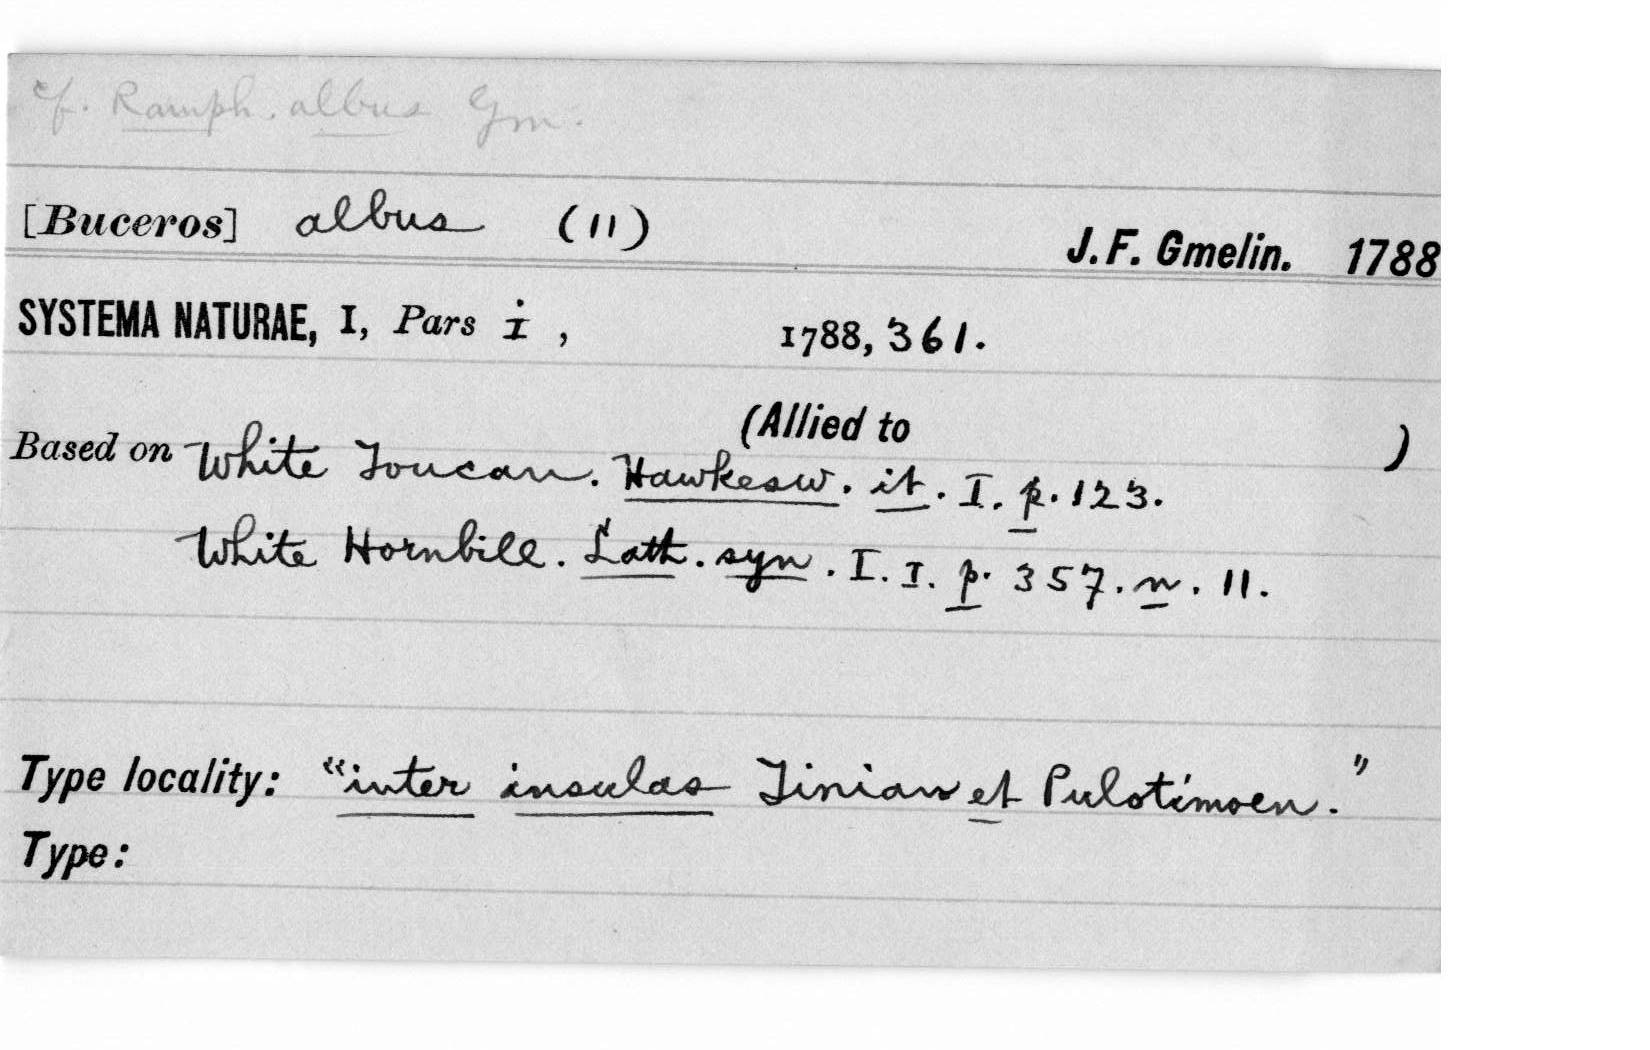 cf. Ramph. albus Gm.
[Buceros] albus (11) J. F. Gmelin. 1788
SYSTEMA NATURAE, I, Pars i , 1788, 361.
(Allied to )
Based on White Toucan. Hawkesw. it. I. p. 123.
White Hornbill. Lath. syn. I. I. p. 357. n. 11.
Type locality: "inter insulas Tinian et Pulotimoen."
Type: